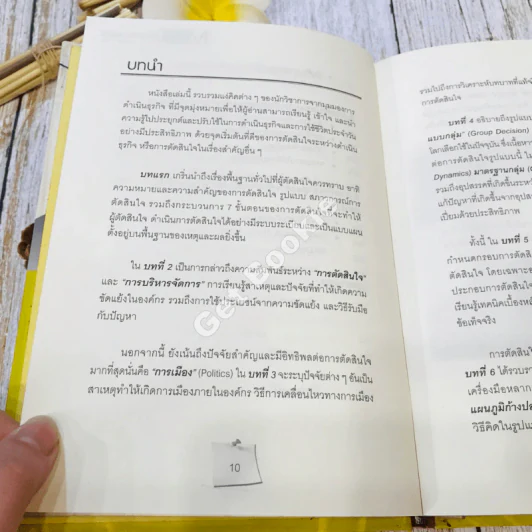 บทนำ
หนังสือเล่มนี้ รวบรวมแง่คิดต่าง ๆ ของนักวิชาการจากมุมมองการ
ดำเนินธุรกิจ ที่มีจุดมุ่งหมายเพื่อให้ผู้อ่านสามารถเรียนรู้ เข้าใจ และนำ
ความรู้ไปประยุกต์และปรับใช้ในการดำเนินธุรกิจและการใช้ชีวิตประจำวัน
อย่างมีประสิทธิภาพ ด้วยจุดเริ่มต้นที่ดีของการตัดสินใจระหว่างดำเนิน
ธุรกิจ หรือการตัดสินใจในเรื่องสำคัญอื่น ๆ
บทแรก เกริ่นนำถึงเรื่องพื้นฐานทั่วไปที่ผู้ตัดสินใจควรทราบ อาทิ
ความหมายและความสำคัญของการตัดสินใจ รูปแบบ สภาวการณ์การ
ตัดสินใจ รวมถึงกระบวนการ 7 ขั้นตอนของการตัดสินใจที่จะทำให้
ผู้ตัดสินใจ ดำเนินการตัดสินใจได้อย่างมีระบบระเบียบและเป็นแบบแผน
ตั้งอยู่บนพื้นฐานของเหตุและผลยิ่งขึ้น
ใน บทที่ 2 เป็นการกล่าวถึงความสัมพันธ์ระหว่าง "การตัดสินใจ"
และ "การบริหารจัดการ" การเรียนรู้สาเหตุและปัจจัยที่ทำให้เกิดความ
ขัดแย้งในองค์กร รวมถึงการใช้ประโยชน์จากความขัดแย้ง และวิธีรับมือ
กับปัญหา
นอกจากนี้ ยังเน้นถึงปัจจัยสำคัญและมีอิทธิพลต่อการตัดสินใจ
มากที่สุดนั่นคือ "การเมือง" (Politics) ใน บทที่ 3 จะระบุปัจจัยต่าง ๆ อันเป็น
สาเหตุทำให้เกิดการเมืองภายในองค์กร วิธีการเคลื่อนไหวทางการเมือง
10
รวมไปถึงการวิเคราะห์บทบาทที่แท้จ
การตัดสินใจ
บทที่ 4 อธิบายถึงรูปแบ
แบบกลุ่ม" (Group Decision)
โลกเลือกใช้ในปัจจุบัน ซึ่งเนื้อหา
ต่อการตัดสินใจรูปแบบนี้ ไม
Dynamics) มาตรฐานกลุ่ม (
รวมถึงอุปสรรคที่เกิดขึ้นระหว
แก้ปัญหาที่เกิดขึ้นจากอุปสร
เปี่ยมด้วยประสิทธิภาพ
ทั้งนี้ ใน บทที่ 5
กำหนดกรอบการตัดสินใจ
ตัดสินใจ โดยเฉพาะการ
ประกอบการตัดสินใจ
เรียนรู้เทคนิคเบื้องห
ข้อเท็จจริง
การตัดสิน
บทที่ 6 ได้รวบรว
เครื่องมือหลาก
แผนภูมิก้างปล
วิธีคิดในรูปแ